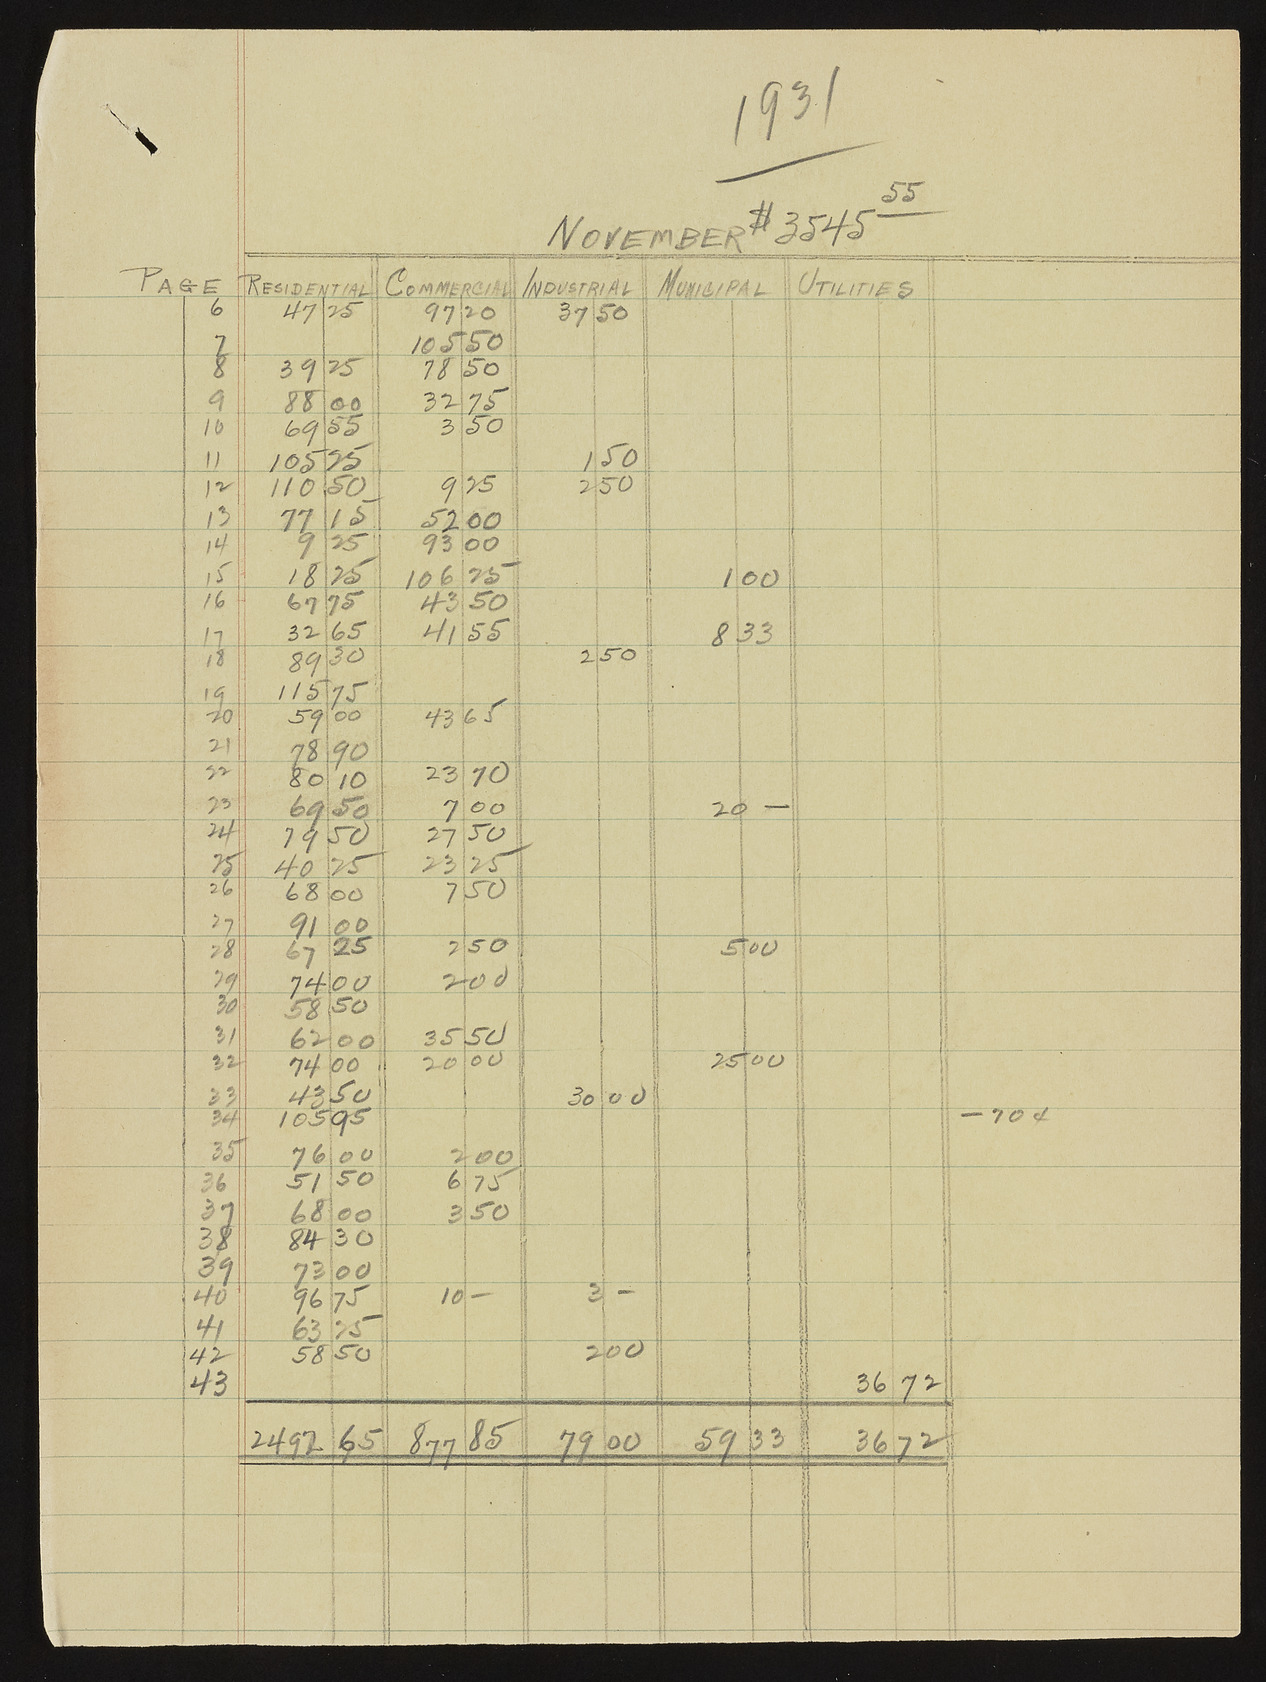 1931
NOVEMBER $3545 55
PAGE RESIDENTIAL COMMERCIAL INDUSTRIAL MUNICIPAL UTILITIES
6 47 25 97 20 37 50
7 105 50
8 39 25 78 50
9 88 00 32 75
10 69 55 3 50
11 105 25 1 50
12 110 50 9 25 2 50
13 77 15 52 00
14 9 25 93 00
15 18 25 106 25 1 00
16 67 75 43 50
17 32 65 41 55 8 33
18 89 30 2 50
19 115 75
20 59 00 43 65
21 78 90
22 80 10 23 70
23 69 50 7 00 20 —
24 79 50 27 50
25 40 25 23 25
26 68 00 7 50
27 91 00
28 67 25 2 50 5 00
29 74 00 2 00
30 58 50
31 62 00 35 50
32 74 00 20 00 25 00
33 43 50 30 00
34 105 95 — 70 ¢
35 76 00 2 00
36 51 50 6 75
37 68 00 3 50
38 84 30
39 73 00
40 96 75 10 — 3 —
41 63 25
42 58 50 2 00
43 36 72
2492 65 877 85 79 00 59 33 36 72